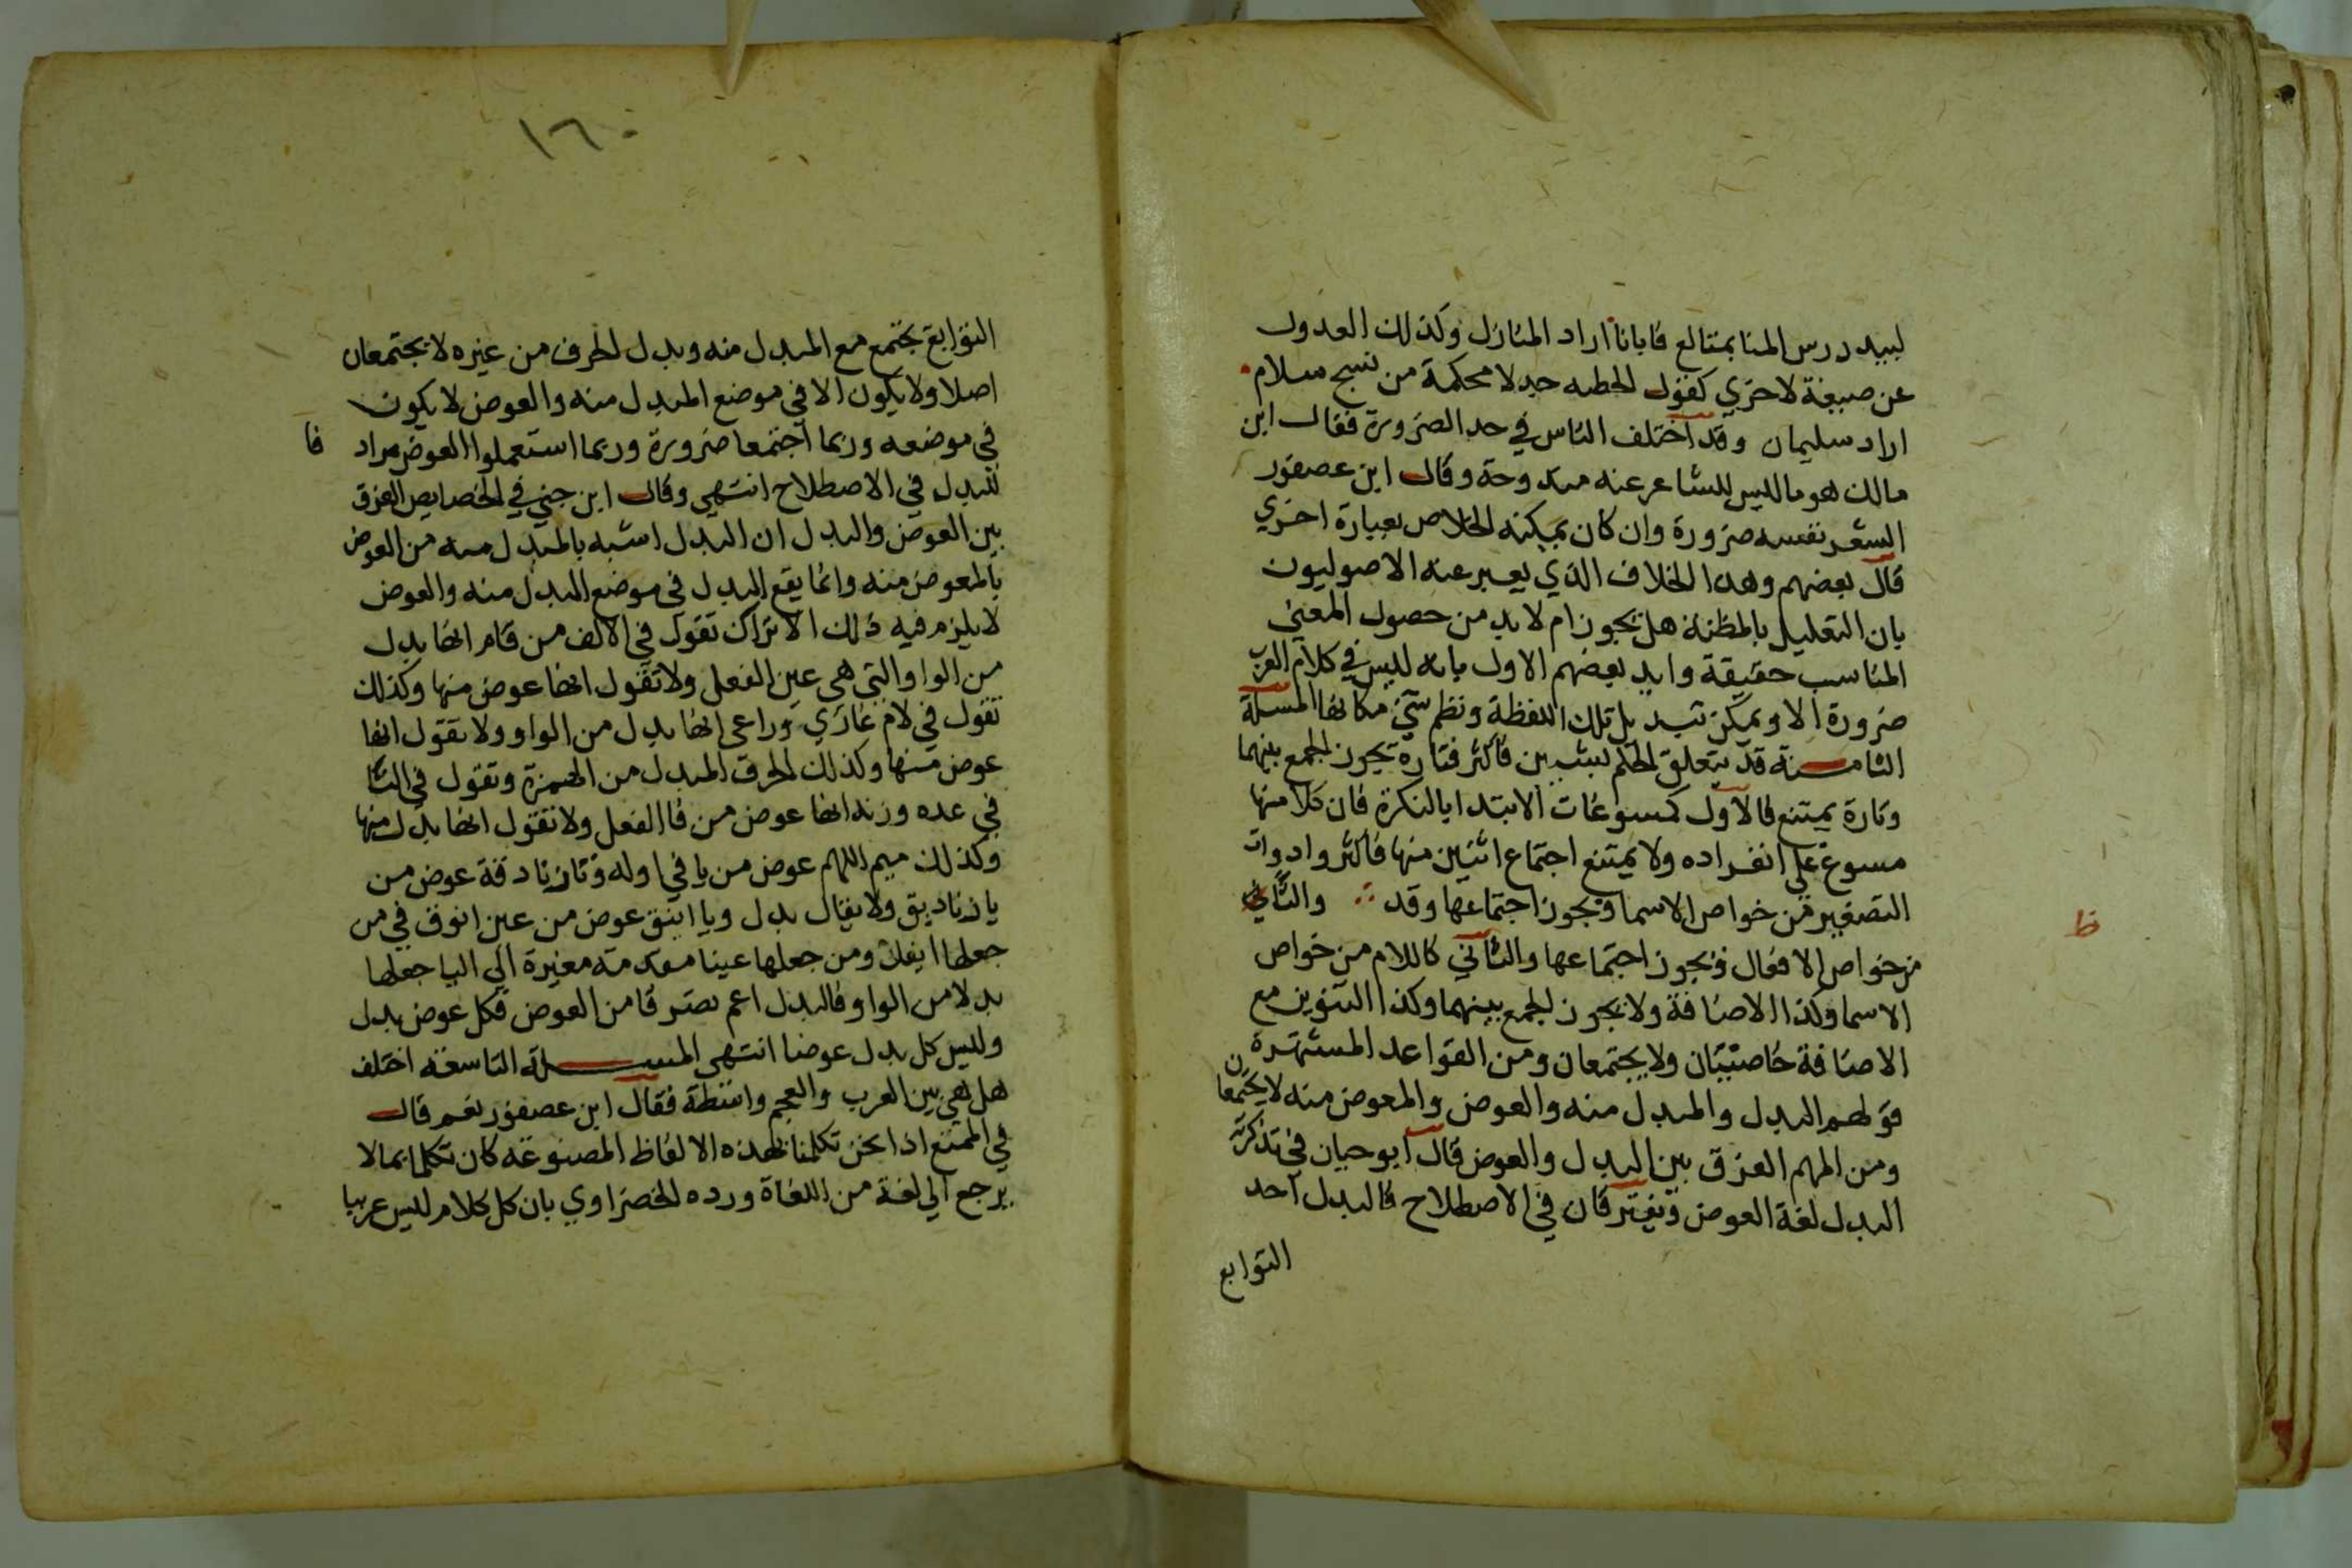 لبيد درس المنا بمتالع فابانا اراد المنازل وكذلك العدول
عن صيغة لاخري كقول الحطيه جدلا محكمة من نسج سلام
اراد سليمان وقد اختلف الناس في حد الضرورة فقال ابن
مالك هو ما ليس للشاعر عنه مندوحة وقال ابن عصفور
الشعر نفسه ضرورة وان كان يمكنه الخلاص بعبارة اخري
قال بعضهم وهذا الخلاف الذي يعبر عنه الاصوليون
بان التعليل بالمظنة هل يجوز ام لا بد من حصول المعني
المناسب حقيقة وايد بعضهم الاول بانه ليس في كلام العرب
ضرورة الا ويمكن تبديل تلك اللفظة ونظم شي مكانها المسلة
الثامنة قد يتعلق الحكم بشيين فاكثر فتارة يجوز الجمع بينهما
وتارة يمتنع فالاول كمسوغات الابتدا بالنكرة فان كلا منها
مسوغ علي انفراده ولا يمتنع اجتماع اثنين منها فاكثر وادوات
التصغير من خواص الاسما ويجوز اجتماعها وقد والثاني
ظ
من خواص الافعال ويجوز اجتماعها والثاني كاللام من خواص
الاسما وكذا الاضافة ولا يجوز الجمع بينهما وكذا التنوين مع
الاضافة خاصيتان ولا يجتمعان ومن القواعد المشتهرة
قولهم البدل والمبدل منه والعوض والمعوض منه لا يجتمعان
ومن المهم الفرق بين البدل والعوض قال ابو حيان في تذكرته
البدل لغة العوض ويفترقان في الاصطلاح فالبدل احد
التوابع
١٦٠
التوابع يجتمع مع المبدل منه وبدل الحرف من غيره لا يجتمعان
اصلا ولا يكون الا في موضع المبدل منه والعوض لا يكون
في موضعه وربما اجتمعا ضرورة وربما استعملوا العوض مراد فا
للبدل في الاصطلاح انتهي وقال ابن جني في الخصايص الفرق
بين العوض والبدل ان البدل اشبه بالمبدل منه من العوض
بالمعوض منه وانما يقع البدل في موضع المبدل منه والعوض
لا يلزم فيه ذلك الا تراك تقول في الالف من قام انها بدل
من الواو التي هي عين الفعل ولا تقول انها عوض منها وكذلك
تقول في لام غازي وراعي انها بدل من الواو ولا تقول انها
عوض منها وكذلك الحرف المبدل من الهمزة وتقول في التا
في عده وزنه انها عوض من فا الفعل ولا تقول انها بدل منها
وكذلك ميم اللهم عوض من يا في اوله وتا زنادقة عوض من
يا زناديق ولا يقال بدل ويا اينق عوض من عين انوق في من
جعلها ايفل ومن جعلها عينا مقدمة مغيرة الي اليا جعلها
بدلا من الواو فالبدل اعم تصرفا من العوض فكل عوض بدل
وليس كل بدل عوضا انتهي المسلة التاسعة اختلف
هل هي بين العرب والعجم واسطة فقال ابن عصفور نعم قال
في الممتع اذا نحن تكلمنا بهذه الالفاظ المصنوعة كان تكلما بما لا
يرجع الي لغة من اللغاة ورده الخضراوي بان كل كلام ليس عربيا